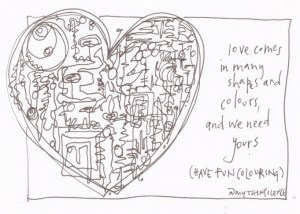 love comes
in many
shaps and
colours,
and we need
yours
(HAVE FUN COLOURING)